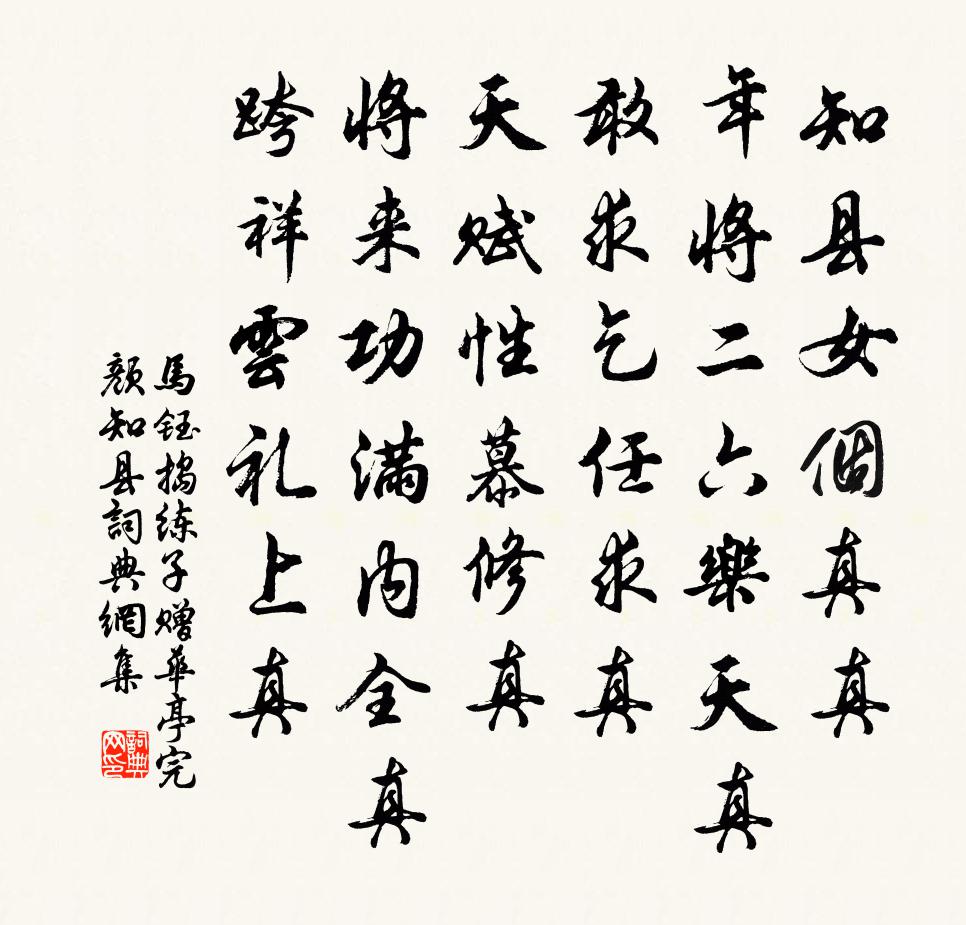 知县女個真真
年將二六樂天真
敢求乞任求真
天赋性慕修真
將来功满内全真
跨祥雲礼上真
馬钰捣练子赠華亭完
颜知县詞典網集
詞典网印